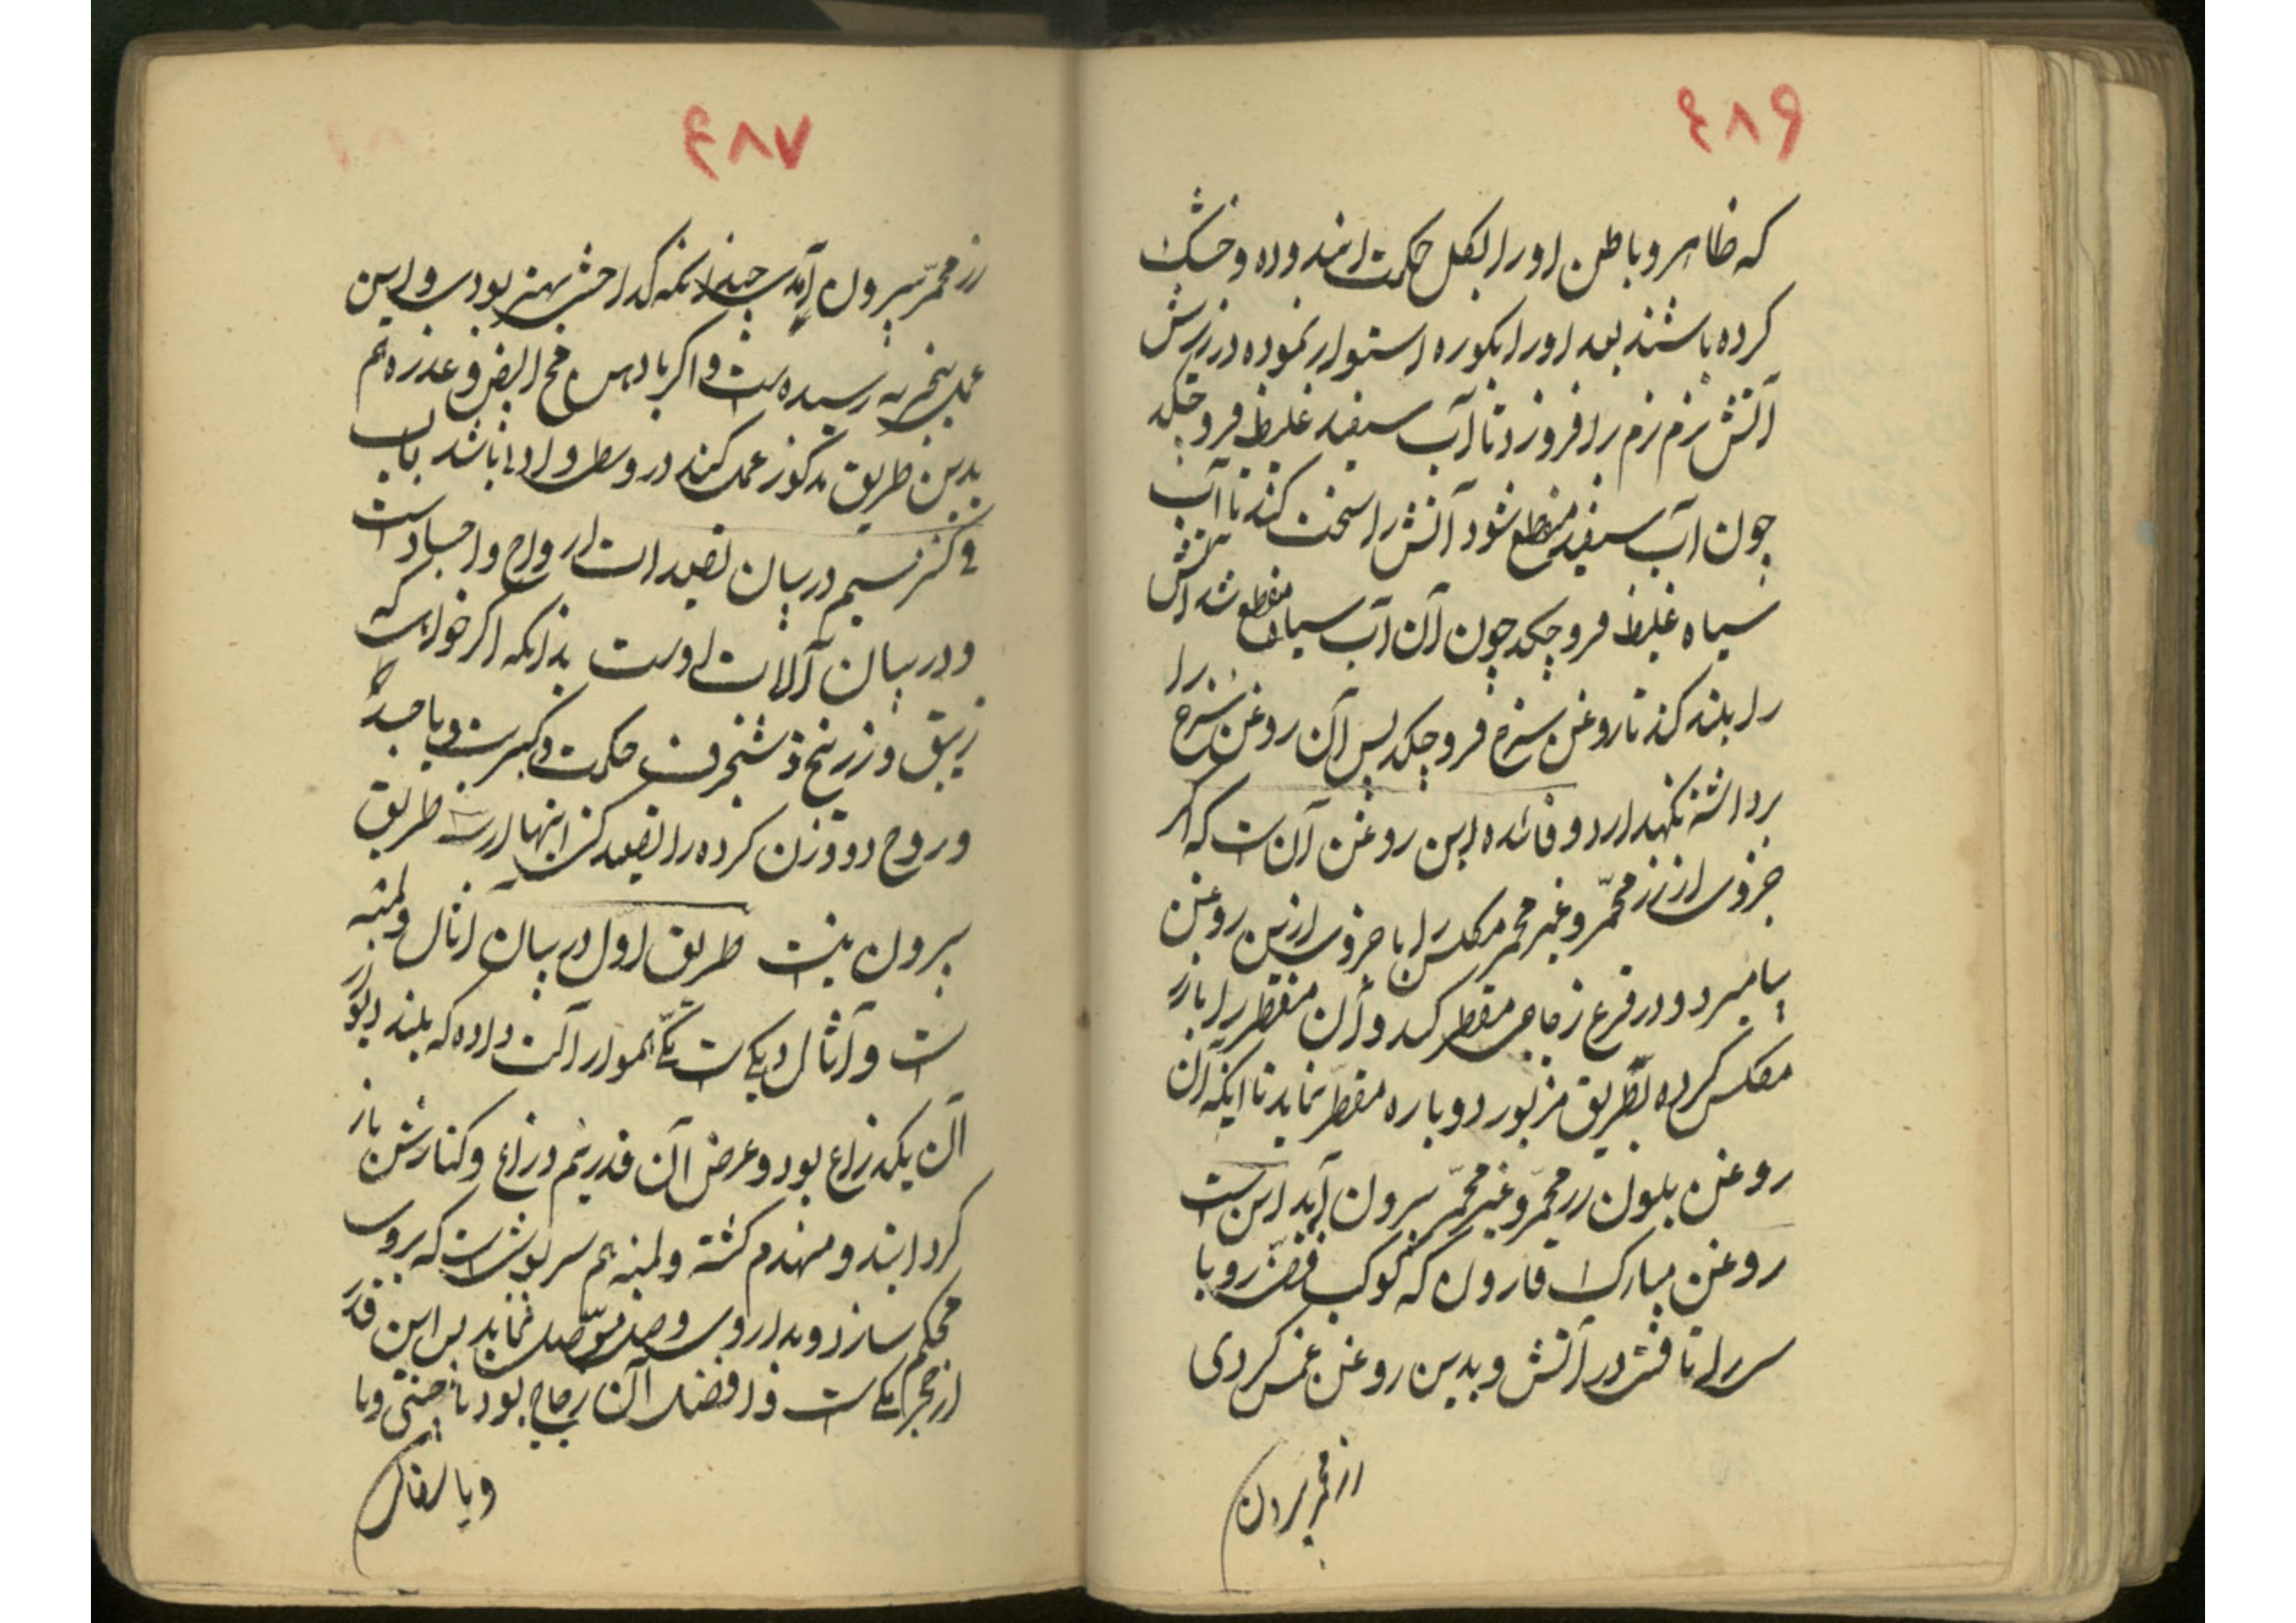 ۴۸۶
که ظاهر و باطن او را بگل حکمت اندوده و خشک
کرده باشند بعد او را بکوره استوار نموده در زیرش
آتش نرم نرم را فروزد تا آب سفید غلیظ فروچکد
چون آب سفید منقطع شود آتش را سخت کند تا آب
سیاه غلیظ فروچکد چون آن آب سیاه منقطع شد آتش
را بلند کند تا روغن سرخ فروچکد پس آن روغن سرخ را
برداشته نگهدارد و فائده این روغن آن است که اگر
جزوی از زر محمّر و غیر محمر مکلس را با جزوی ازین روغن
بیامیزد و در قرع زجاجی مقطر کند و آن مقطر را با زر
مکلس کرده بطریق مزبور دوباره مقطر نماید تا اینکه آن
روغن بلون زر محمّر و غیر محمّر بیرون آید این است
روغن مبارک قارون که کوکب فضّه رو با
سر را تافته در آتش و بدین روغن غمس کردی
زر محمر بیرون
۴۸۷
زر محمّر بیرون آمدی چندانکه گداختی بهتر بودی و این
عمل بتجربه رسیده است و اگر با دهن مح البیض و عذره هم
بدین طریق مذکور عمل کنند در وسط و ادنا باشد باب
در بیان تصعید است ارواح و اجساد است
و در بیان آلات اوست بدانکه اگر خواهی که
زیبق و زرنیخ و شنجرف حکمت و کبریت و یا جسد
و روح دو وزن کرده را تصعید کنی اینها از سه طریق
بیرون نیست طریق اول در بیان آثال و لمبه
است و آثال دیکی است یکی هموار آلت داده که بلندی دور
آن یکذراع بود و عرض آن قدر نیم ذراع و کنارش باز
کردانند و مهندم کشته و لمبه هم سرپوش است که بروی
محکم سازند و بداروی وصل موصّل نمایند پس این قدر
از حجر یکی است و افضل آن زجاج بود یا چینی و یا
و یا سفال